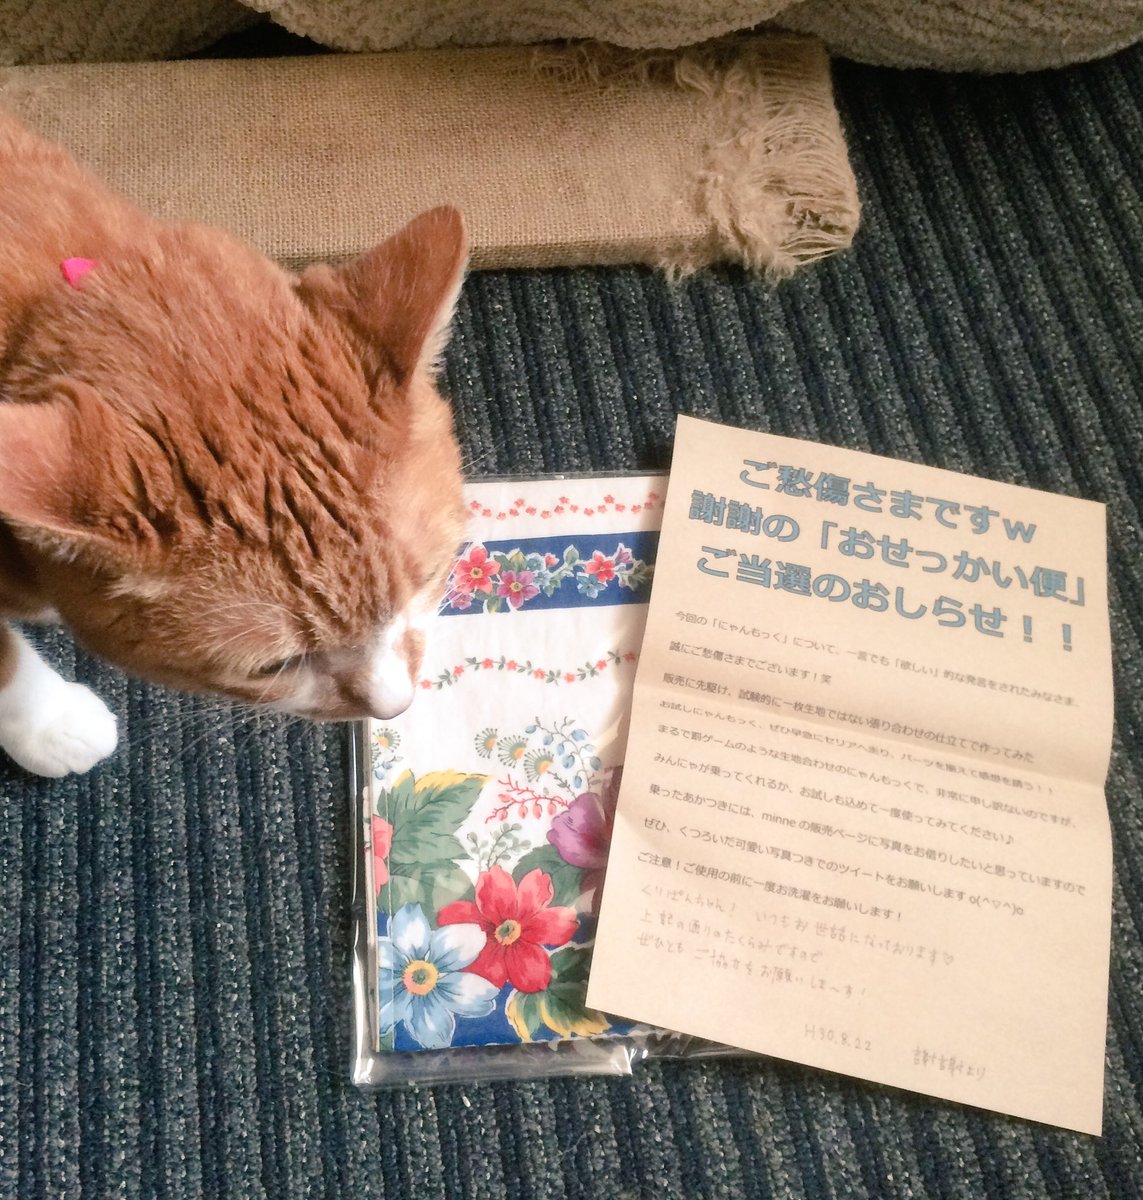 ご愁傷さまですw
謝謝の「おせっかい便」
ご当選のおしらせ！！
今回の「にゃんもっく」について、一言でも「欲しい」的な発言をされたみなさま、
誠にご愁傷さまでございます！笑
販売に先駆け、試験的に一枚生地ではない張り合わせの仕立てで作ってみた
お試しにゃんもっく、ぜひ早急にセリアへ走り、パーツを揃えて感想を請う！！
まるで罰ゲームのような生地合わせのにゃんもっくで、非常に申し訳ないのですが、
みんにゃが乗ってくれるか、お試しも込めて一度使ってみてください♪
乗ったあかつきには、minneの販売ページに写真をお借りしたいと思っていますので
ぜひ、くつろいだ可愛い写真つきでのツイートをお願いしますo(^▽^)o
ご注意！ご使用の前に一度お洗濯をお願いします！
くりぱんちゃん！ いつもお世話になっております♡
上記の通りのたくらみですので
ぜひとも ご協力をお願いしま〜す！
H30.8.22 謝謝より